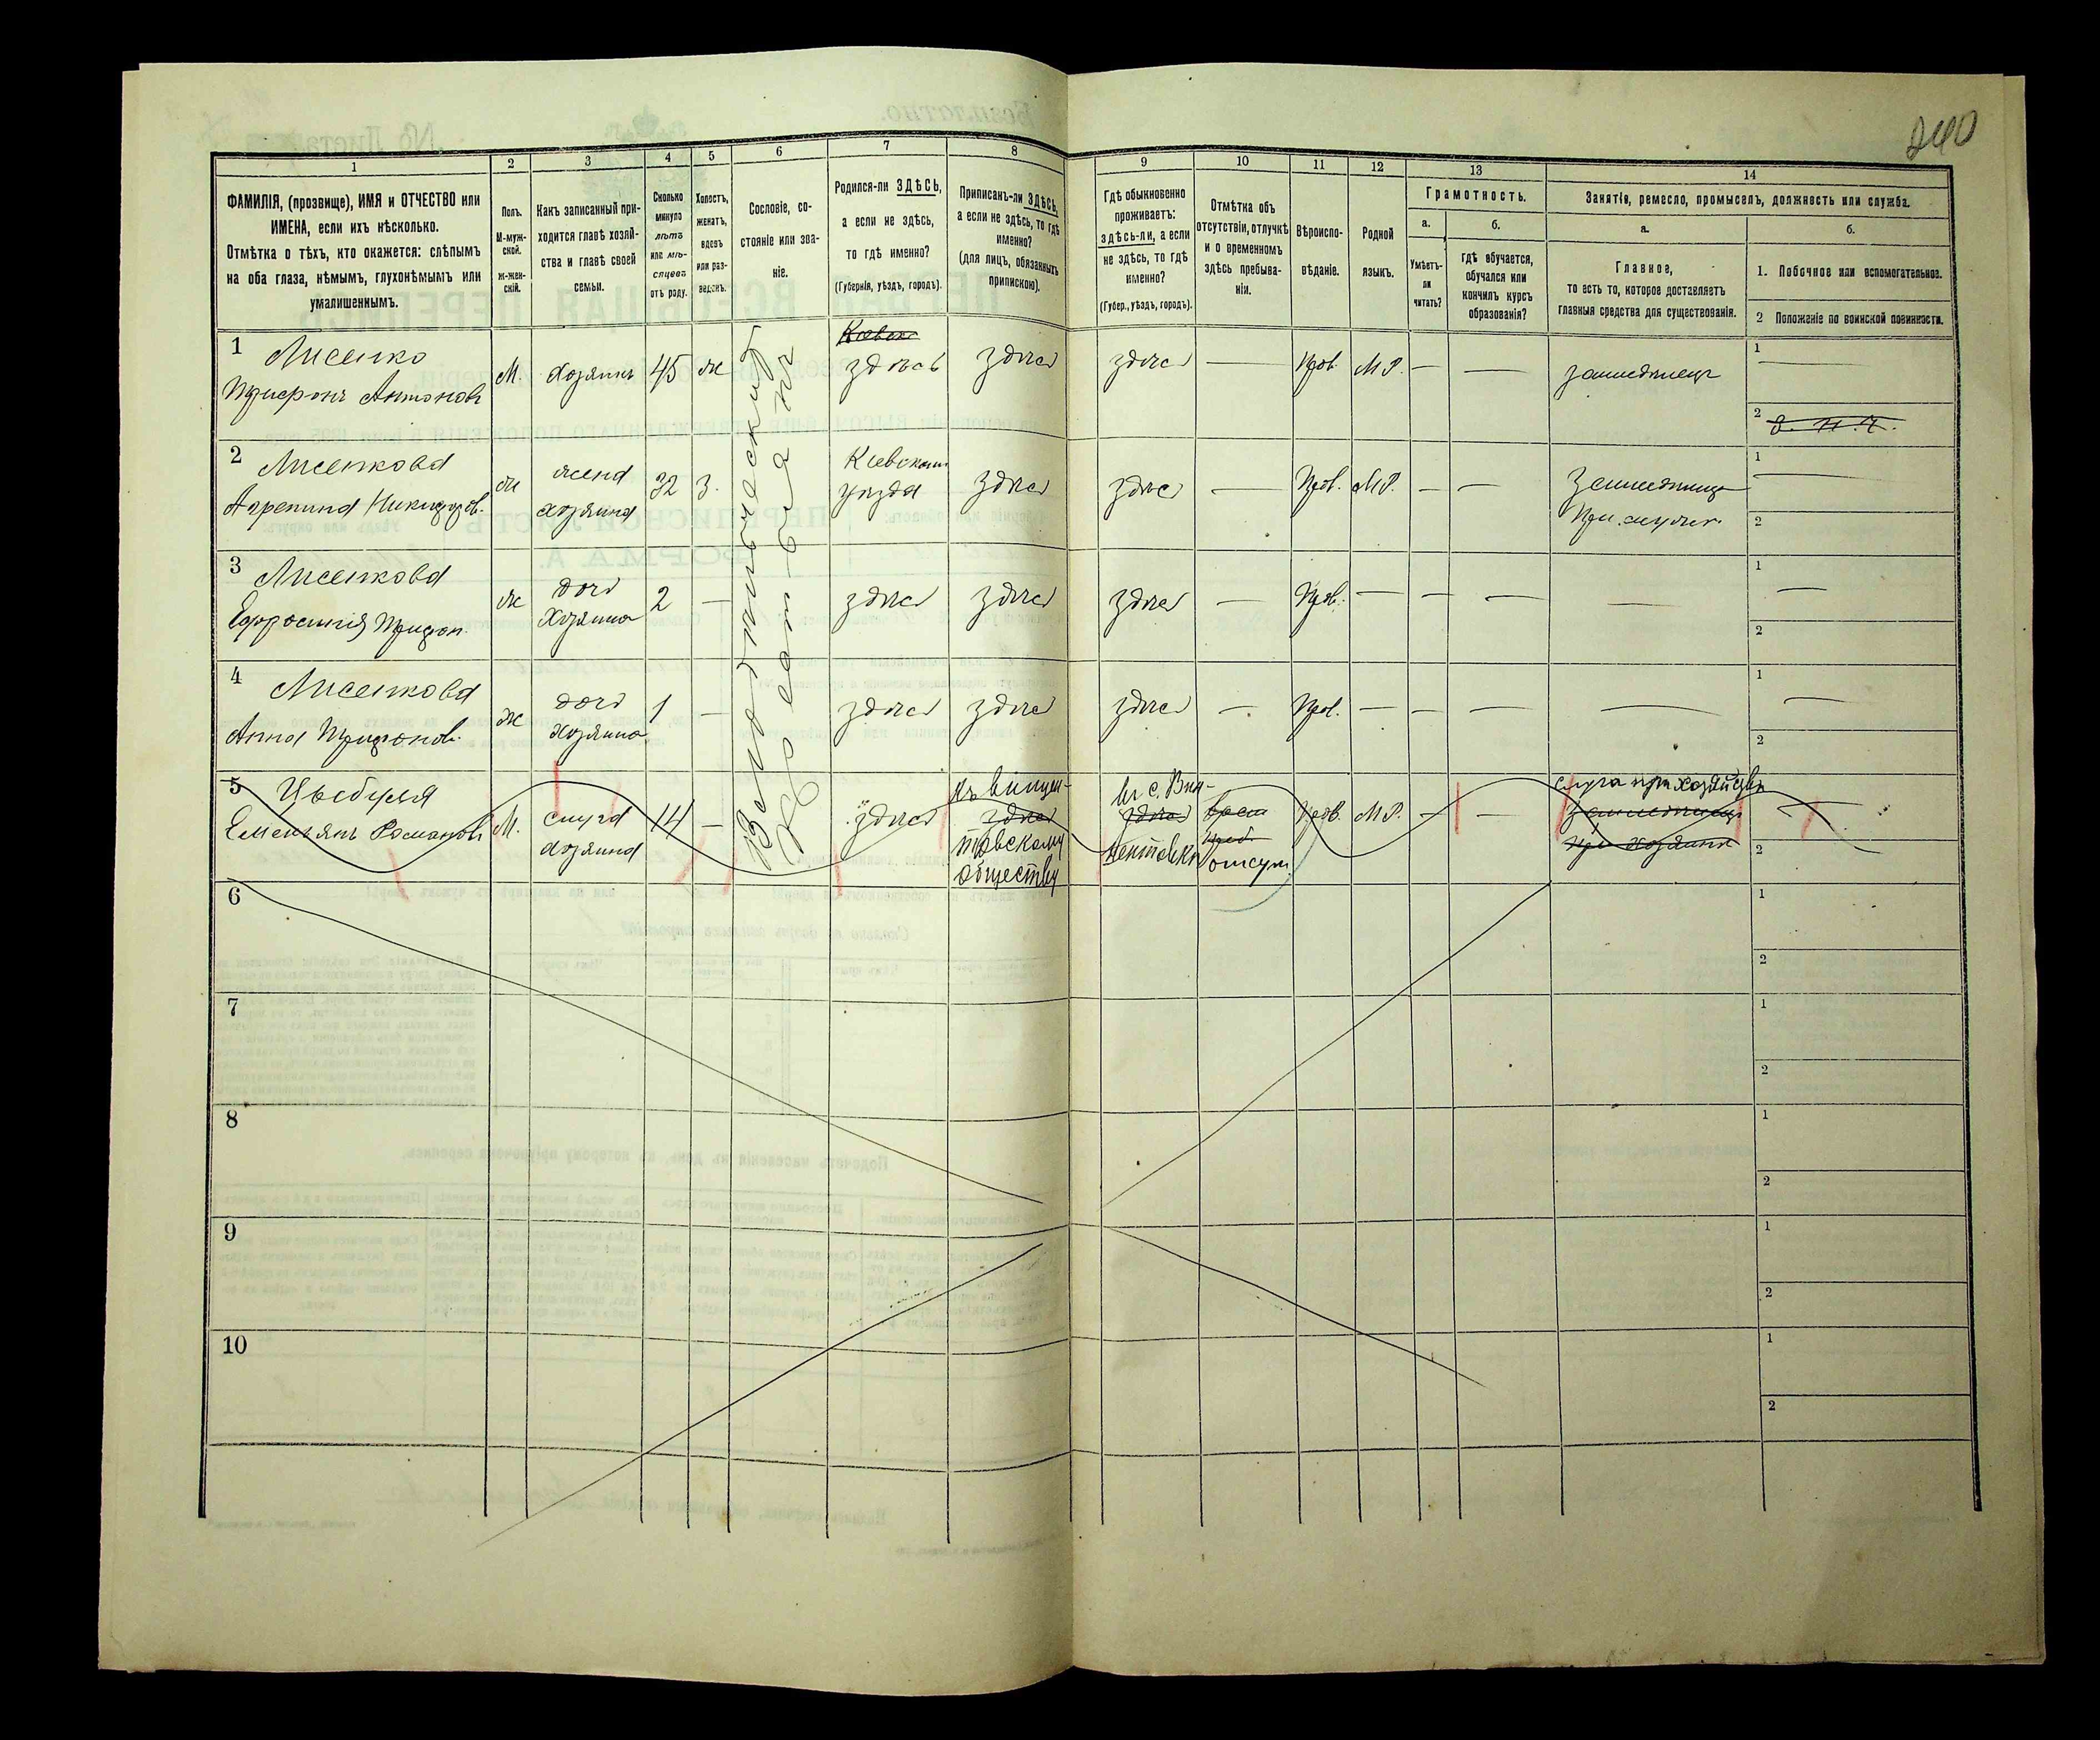 240
1
2
3
4
5
6
7
8
9
10
11
12
13
14
ФАМИЛІЯ, (прозвище), ИМЯ и ОТЧЕСТВО или
ИМЕНА, если ихъ нѣсколько.
Отмѣтка о тѣхъ, кто окажется: слѣпымъ
на оба глаза, нѣмымъ, глухонѣмымъ или
умалишеннымъ.
Полъ.
М-муж-
ской.
ж-жен-
скій.
Какъ записанный при-
ходится главѣ хозяй-
ства и главѣ своей
семьи.
Сколько
минуло
лѣтъ
или мѣ-
сяцевъ
отъ роду.
Холостъ,
женатъ,
вдовъ
или раз-
веденъ.
Сословіе, со-
стояніе или зва-
ніе.
Родился-ли ЗДѢСЬ,
а если не здѣсь,
то гдѣ именно?
(Губернія, уѣздъ, городъ).
Приписанъ-ли ЗДѢСЬ,
а если не здѣсь, то гдѣ
именно?
(для лицъ, обязанныхъ
припискою).
Гдѣ обыкновенно
проживаетъ:
здѣсь-ли, а если
не здѣсь, то гдѣ
именно?
(Губер., уѣздъ, городъ).
Отмѣтка объ
отсутствіи, отлучкѣ
и о временномъ
здѣсь пребыва-
ніи.
Вѣроиспо-
вѣданіе.
Родной
языкъ.
Грамотность.
а.
б.
Умѣетъ-
ли
читать?
гдѣ обучается,
обучался или
кончилъ курсъ
образованія?
Занятіе, ремесло, промыселъ, должность или служба.
а.
б.
Главное,
то есть то, которое доставляетъ
главныя средства для существованія.
1. Побочное или вспомогательное.
2 Положеніе по воинской повинности.
1 Лисенко
Трифонъ Антоновъ
М. хозяинъ 45 ж
Кіевск
здѣсь здѣсь здѣсь — Прав. М.Р. — — земледѣлецъ
1 —
2
2 Лисенкова
Агрепина Никифоров.
ж жена
хозяина 32 з.
Кіевскаго
уѣзда здѣсь здѣсь — Прав. М.Р. — — земледѣлица
При мужѣ
1 —
2
3 Лисенкова
Ефросинія Трифон.
ж дочь
хозяина 2 — здѣсь здѣсь здѣсь — Прав. — — — —
1 —
2
4 Лисенкова
Анна Трифонов.
ж дочь
хозяина 1 — здѣсь здѣсь здѣсь — Прав. — — — —
1 —
2
5 Цыбуля
Емельянъ Романовъ
М. слуга
хозяина 14 — здѣсь
здѣсь
товскому
обществу
въ с. Вин-
здѣсь
отсут.
Прав. М.Р. — —
слуга при хозяйствѣ
при хозяинѣ
1
2
6
1
2
7
1
2
8
1
2
9
1
2
10
1
2